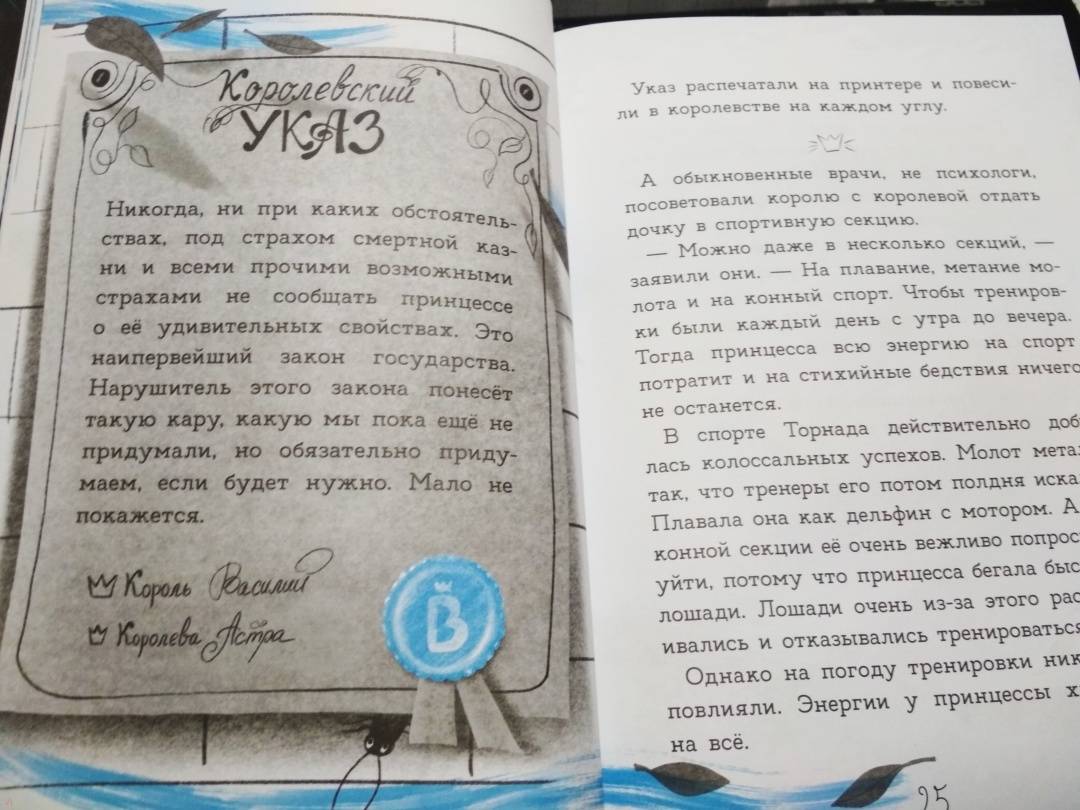 Королевский
УКАЗ
Никогда, ни при каких обстоятель-
ствах, под страхом смертной каз-
ни и всеми прочими возможными
страхами не сообщать принцессе
о её удивительных свойствах. Это
наипервейший закон государства.
Нарушитель этого закона понесёт
такую кару, какую мы пока ещё не
придумали, но обязательно приду-
маем, если будет нужно. Мало не
покажется.
Король Василий
Королева Астра
В
Указ распечатали на принтере и повеси-
ли в королевстве на каждом углу.
А обыкновенные врачи, не психологи,
посоветовали королю с королевой отдать
дочку в спортивную секцию.
— Можно даже в несколько секций, —
заявили они. — На плавание, метание мо-
лота и на конный спорт. Чтобы трениров-
ки были каждый день с утра до вечера.
Тогда принцесса всю энергию на спорт
потратит и на стихийные бедствия ничего
не останется.
В спорте Торнада действительно доб
лась колоссальных успехов. Молот мета
так, что тренеры его потом полдня иска
Плавала она как дельфин с мотором. А
конной секции её очень вежливо попрос
уйти, потому что принцесса бегала быс
лошади. Лошади очень из-за этого рас
ивались и отказывались тренироваться
Однако на погоду тренировки ник
повлияли. Энергии у принцессы х
на всё.
25